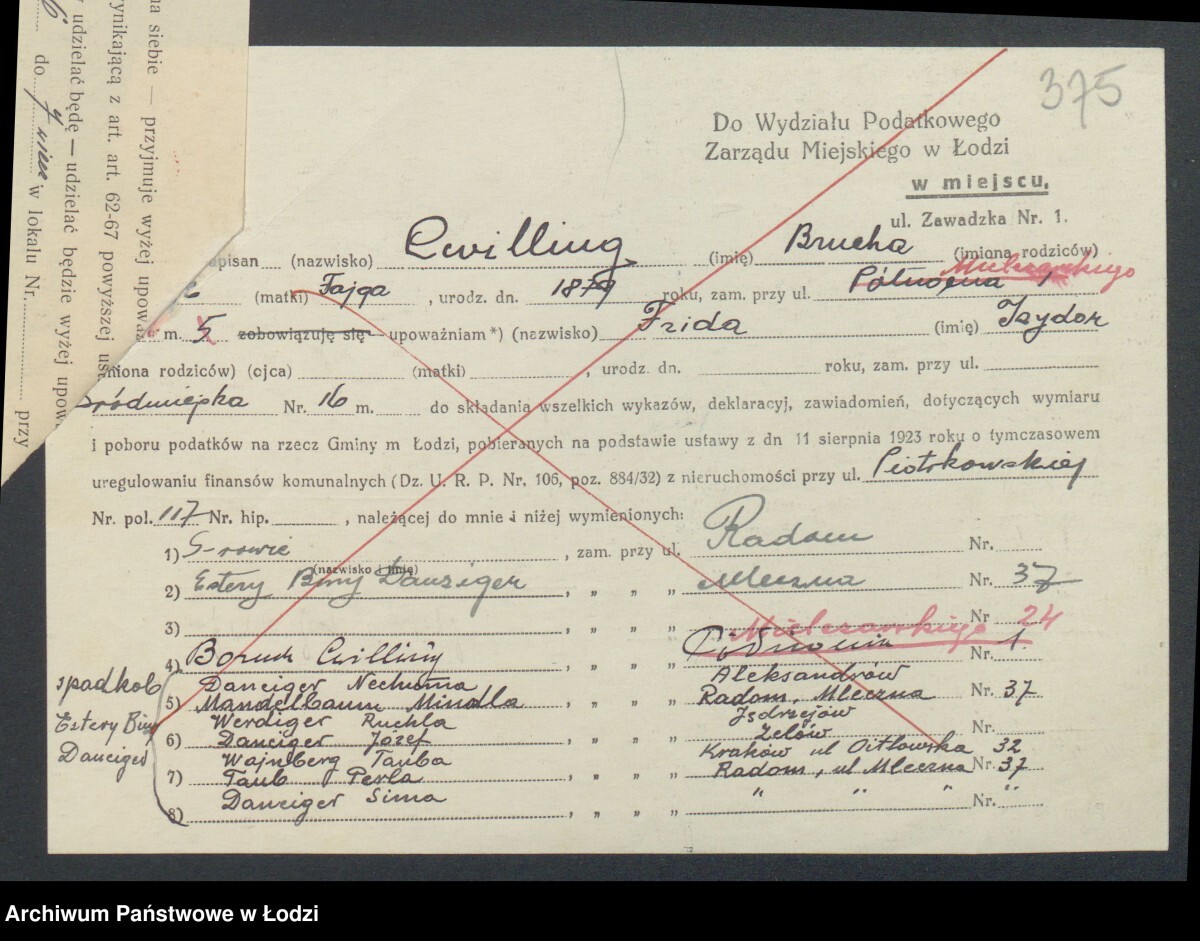 375
Do Wydziału Podatkowego
Zarządu Miejskiego w Łodzi
w miejscu,
ul. Zawadzka Nr. 1.
apisan (nazwisko) Cwilling (imię) Brucha (imiona rodziców)
(matki) Fajga, urodz. dn. 1879 roku, zam. przy ul. Północna 1 Mielczarskiego
m. 5 zobowiązuję się upoważniam *) (nazwisko) Frida (imię) Izydor
imiona rodziców) (ojca) (matki) , urodz. dn. roku, zam. przy ul.
Śródmiejska Nr. 16 m. do składania wszelkich wykazów, deklaracyj, zawiadomień, dotyczących wymiaru
i poboru podatków na rzecz Gminy m Łodzi, pobieranych na podstawie ustawy z dn 11 sierpnia 1923 roku o tymczasowem
uregulowaniu finansów komunalnych (Dz. U. R. P. Nr. 106, poz. 884/32) z nieruchomości przy ul. Piotrkowskiej
Nr. pol. 117 Nr. hip. , należącej do mnie i niżej wymienionych:
1) S-rowie , zam. przy ul. Radom Nr.
(nazwisko i imię)
2) Estery Biny Danziger, „ „ „ Mleczna Nr. 37
3) , „ „ „ Mielczarskiego Nr 24
4) Boruch Cwilling „ „ „ Północna Nr. 1
Danciger Nechuma Aleksandrów
5) Mandelbaum Mindla, „ „ „ Radom, Mleczna Nr. 37
Werdiger Ruchla Jędrzejów
6) Danciger Józef, „ „ „ Zelów Nr.
Wajnberg Tauba Kraków ul 32
7) Taub Perla, „ „ „ Radom, ul Mleczna Nr. 37
8) Danciger Sima, „ „ „ " " " Nr. "
spadkob
Estery Biny
Danciger
na siebie — przyjmuje wyżej upoważ
ynikającą z art. art. 62-67 powyższej ust
udzielać będę — udzielać będzie wyżej upow
do w lokalu Nr. przy
Archiwum Państwowe w Łodzi